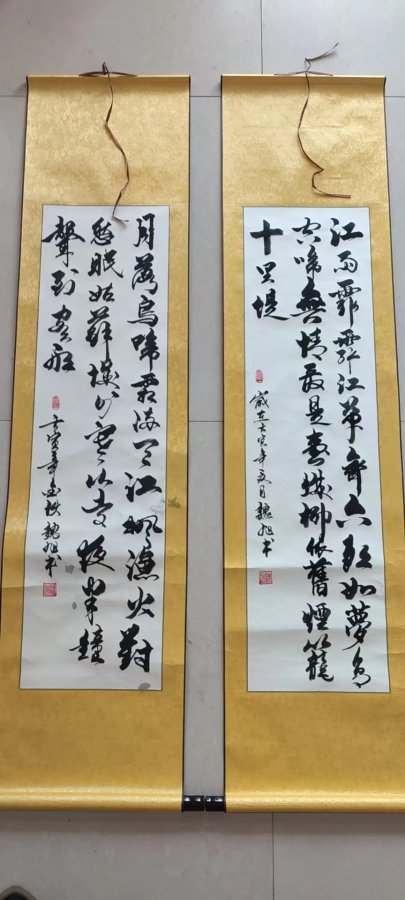 江雨霏霏江草齊六朝如夢鳥
空啼無情最是臺城柳依舊煙籠
十里堤
歲在壬寅年夏月魏旭书
月落烏啼霜满天江楓漁火對
愁眠姑蘇城外寒山寺夜半鐘
聲到客船
壬寅年金秋魏旭书